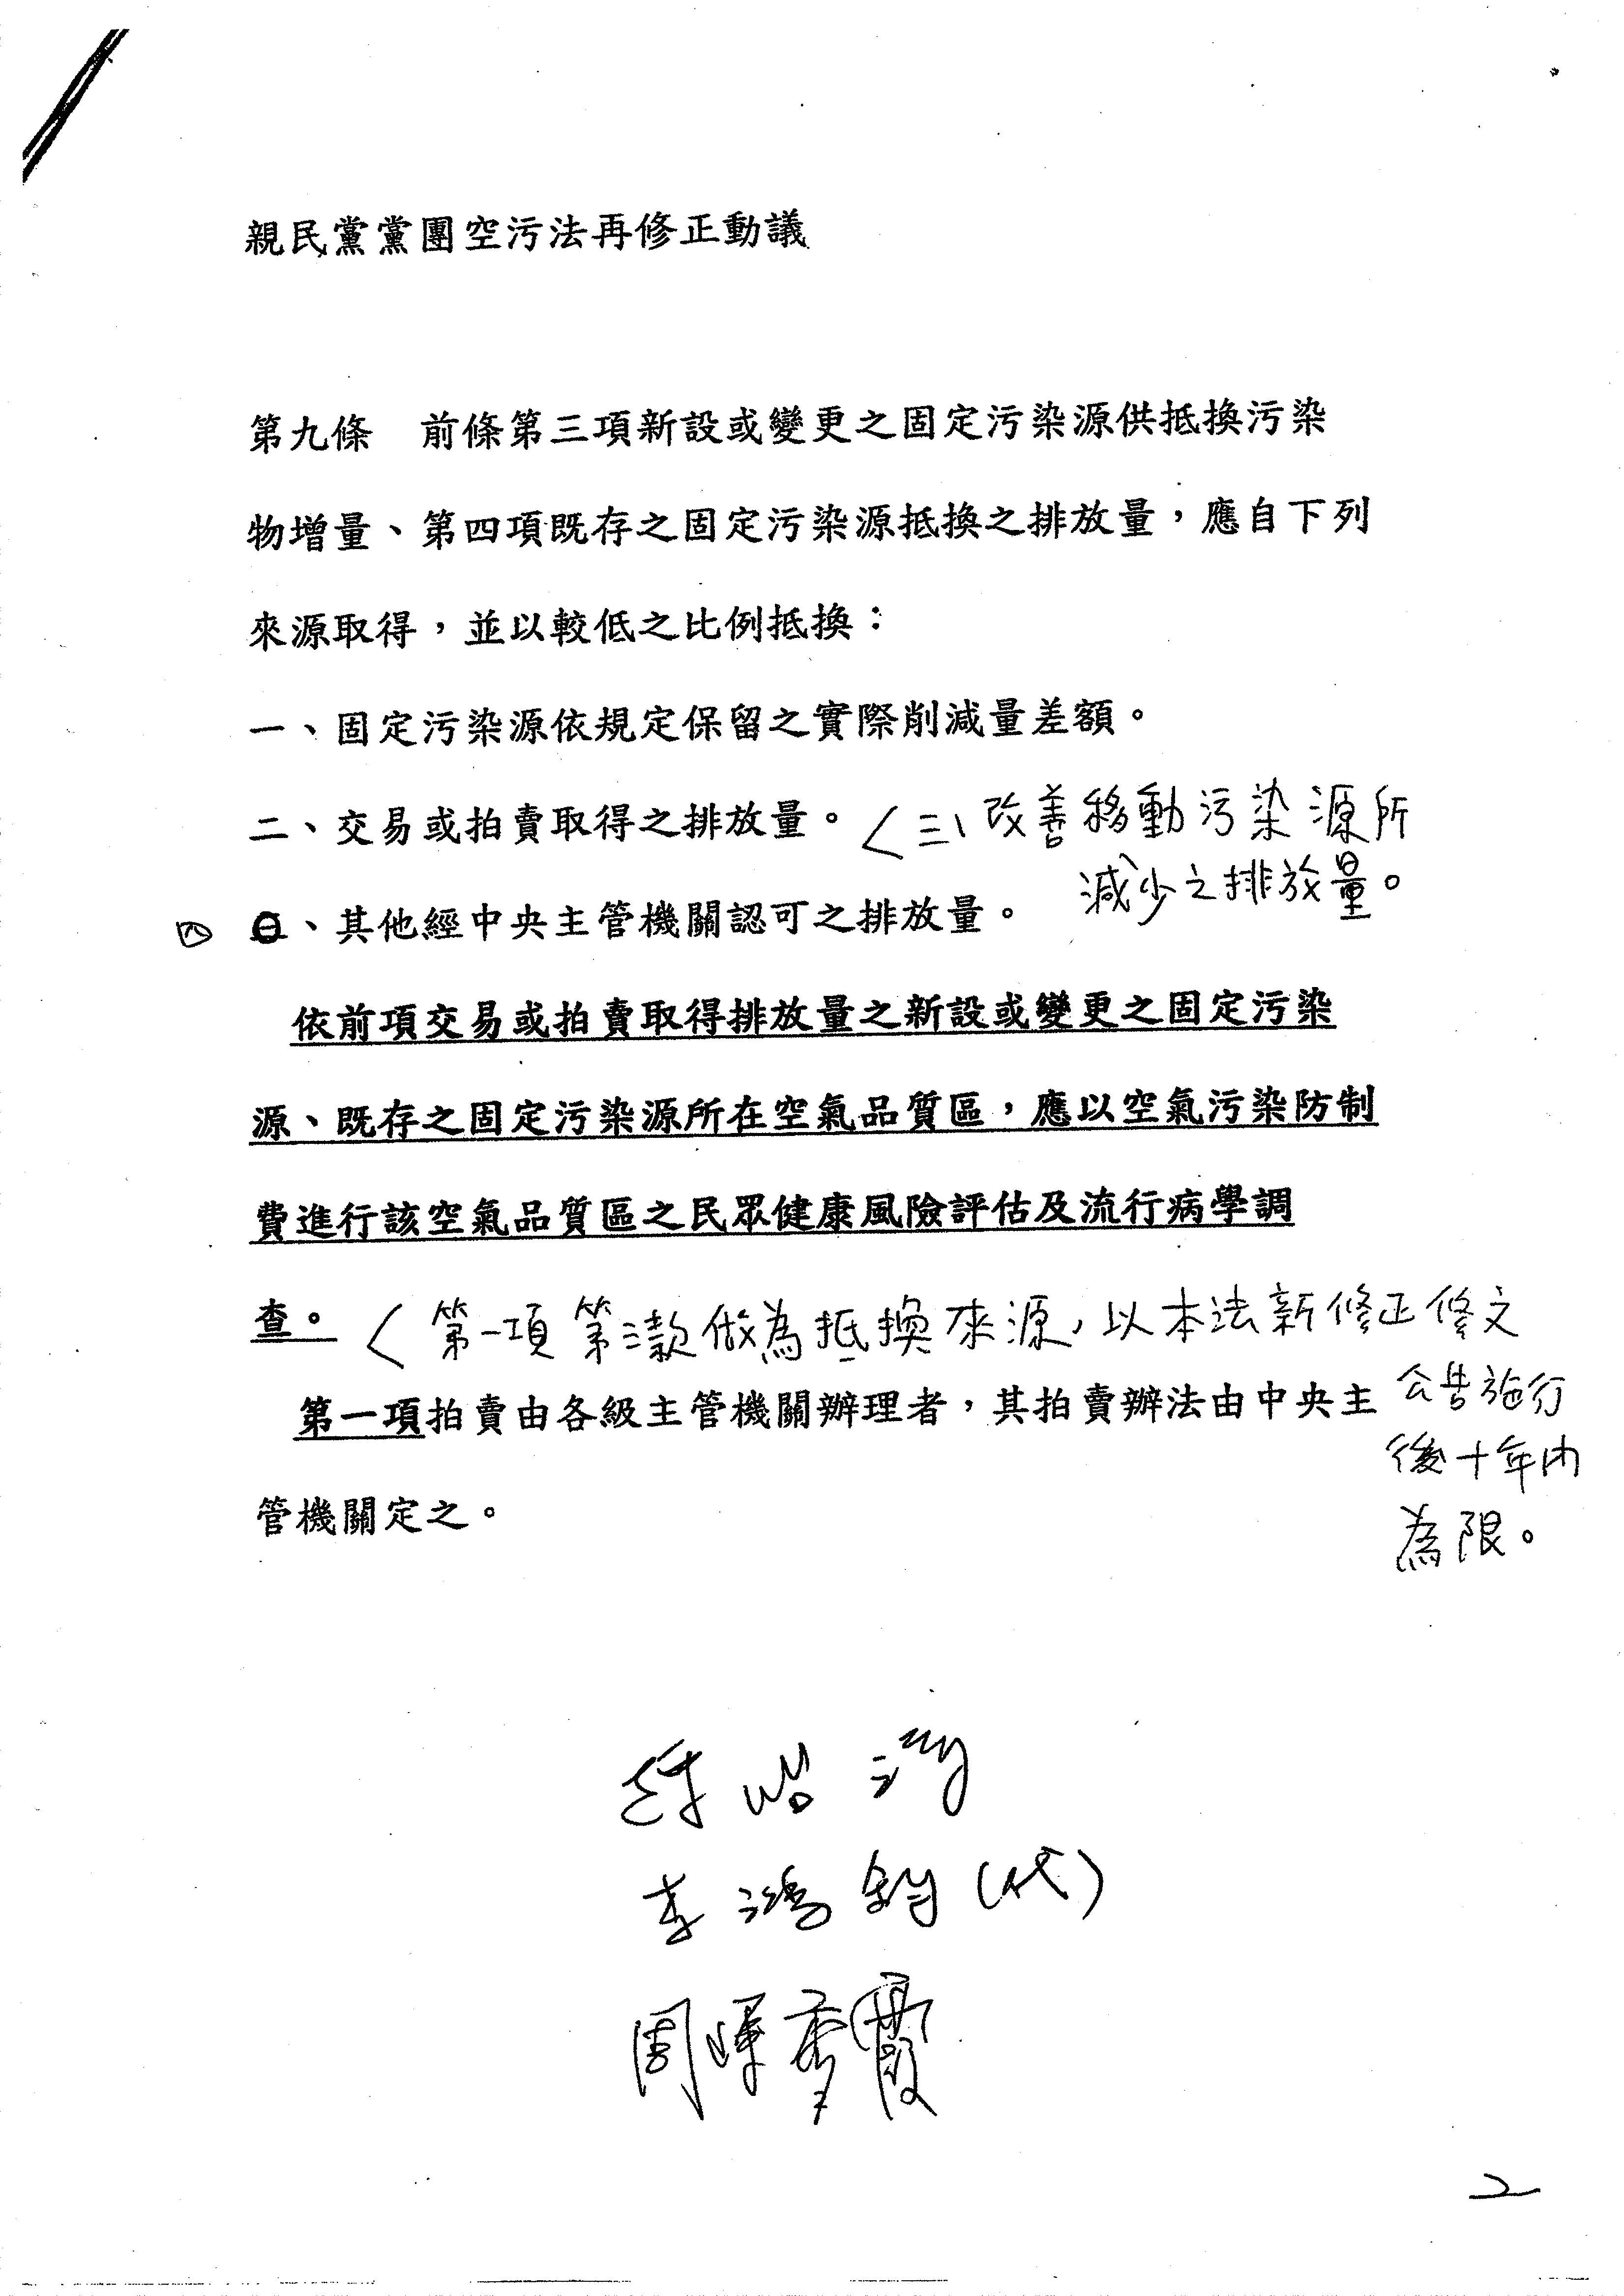 親民黨黨團空污法再修正動議
第九條　前條第三項新設或變更之固定污染源供抵換污染
物增量、第四項既存之固定污染源抵換之排放量，應自下列
來源取得，並以較低之比例抵換：
一、固定污染源依規定保留之實際削減量差額。
二、交易或拍賣取得之排放量。
〈三、改善移動污染源所
減少之排放量。
四
、其他經中央主管機關認可之排放量。
依前項交易或拍賣取得排放量之新設或變更之固定污染
源、既存之固定污染源所在空氣品質區，應以空氣污染防制
費進行該空氣品質區之民眾健康風險評估及流行病學調
查。
〈第一項第三款做為抵換來源，以本法新修正條文
公告施行
後十年內
為限。
第一項拍賣由各級主管機關辦理者，其拍賣辦法由中央主
管機關定之。
李鴻鈞(代)
周陳秀霞
2